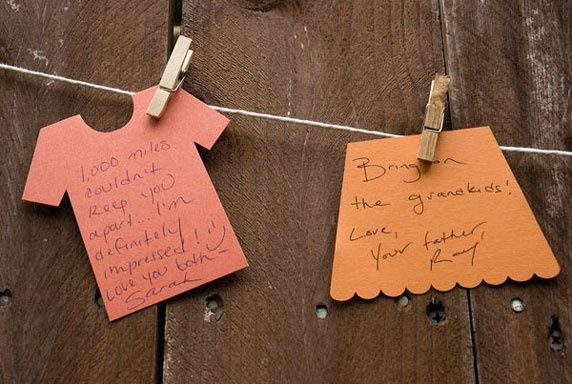 1,000 miles
couldn't
keep you
apart... I'm
definitely
impressed!
Love you both—
Sarah
Bring on
the grandkids!
Love,
Your father,
Ray